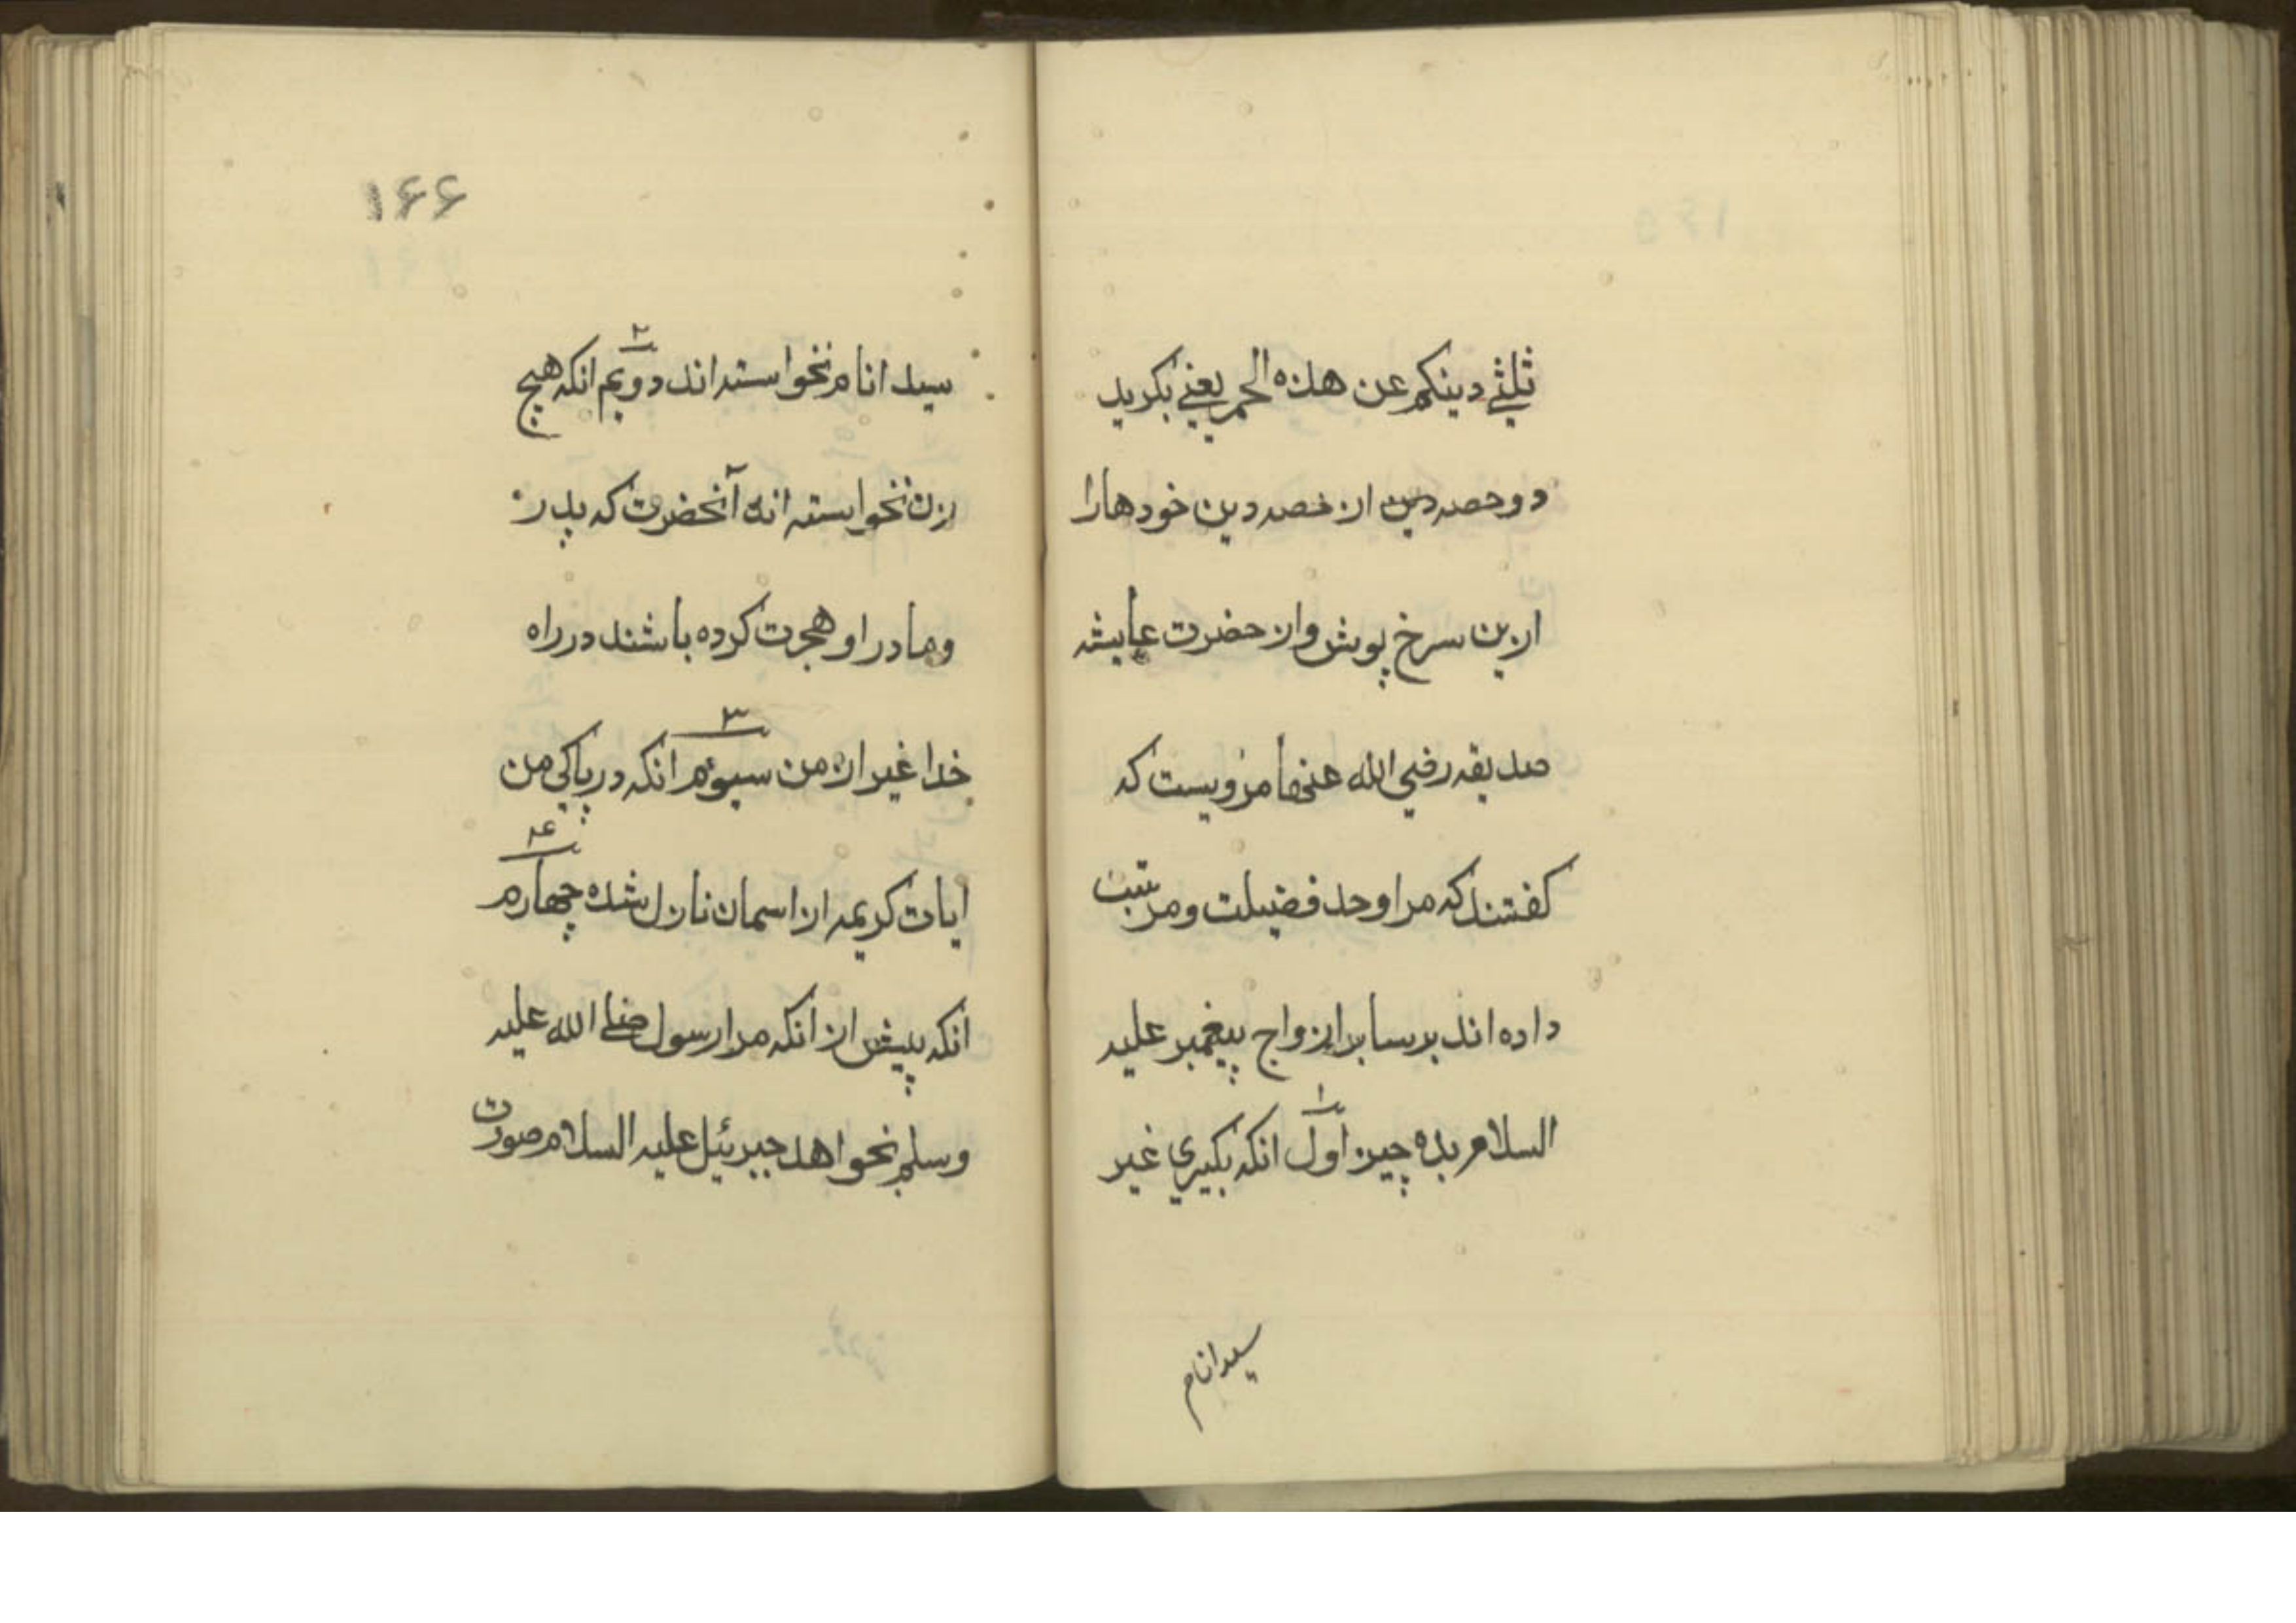 ثلثي دينكم عن هذه الحمر يعني بكريد
دو حصه دين از حصه دين خودها را
ازين سرخ پوش واز حضرت عايشه
صديقه رضي الله عنها مرويست كه
كفتند كه مرا وحد فضيلت ومرتبت
داده اند بر ساير ازواج پيغمبر عليه
السلام بده چيز اول انكه بكيري غير
۱
سيد انام
۱۶۶
سيد انام نخواسته اند دويم انكه هيچ
۲
زن نخواسته اند آنحضرت كه پدر
ومادر او هجرت كرده باشند در راه
خدا غير از من سيوم انكه در پاكي من
۳
ايات كريمه از اسمان نازل شده چهارم
۴
انكه پيش از انكه مرا رسول صلي الله عليه
وسلم نحواهد جبرئيل عليه السلام صورت